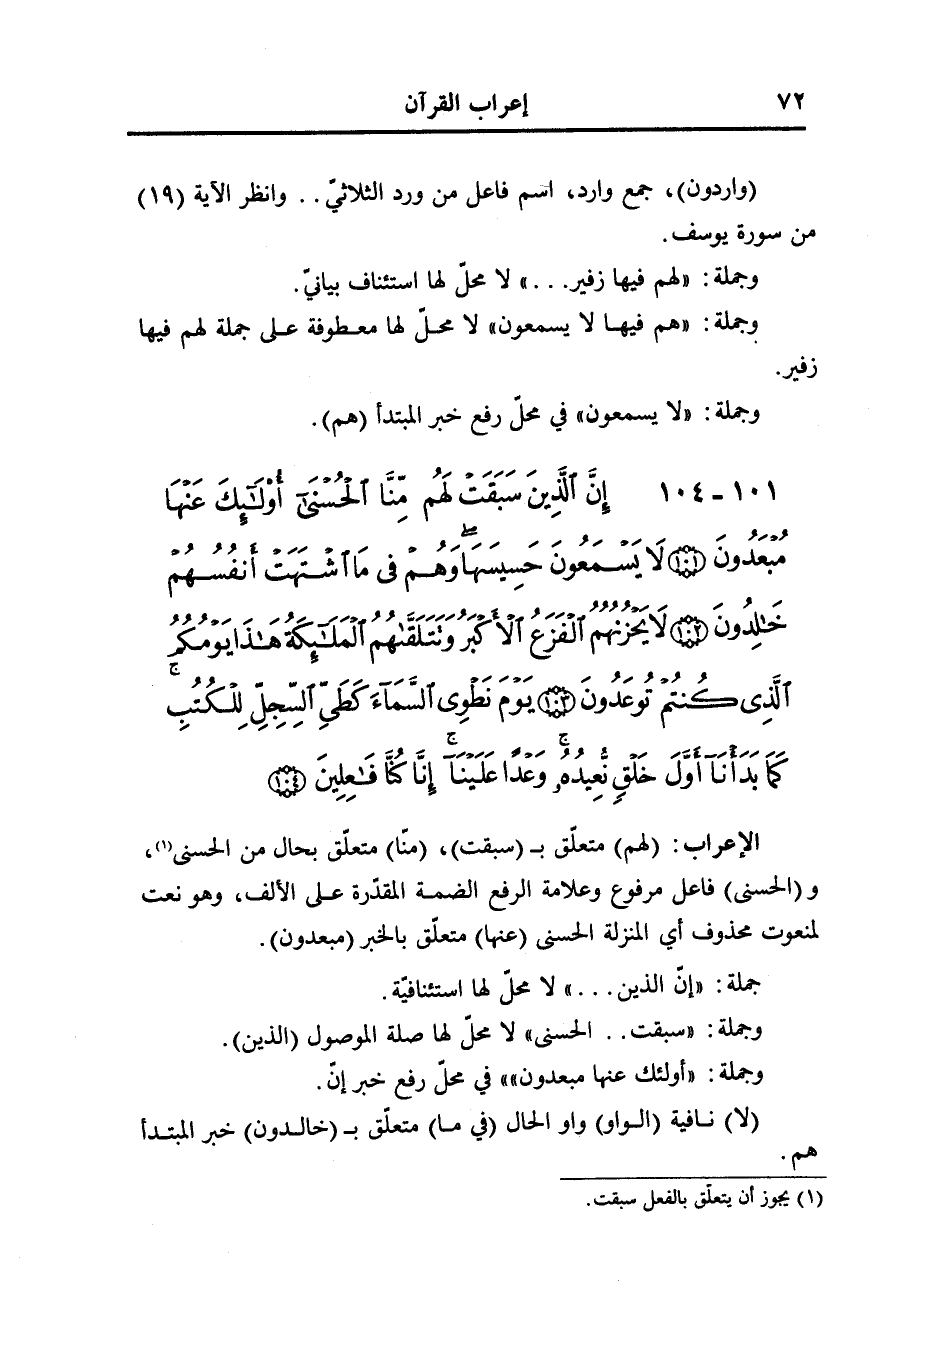 ٧٢
إعراب القرآن
(واردون)، جمع وارد، اسم فاعل من ورد الثلاثيّ . . وانظر الآية (١٩)
من سورة يوسف.
وجملة: «لهم فيها زفير. . .» لا محلّ لها استئناف بيانيّ.
وجملة: «هم فيهـا لا يسمعون» لا محـلّ لها معـطوفة عـلى جملة لهم فيها
زفير.
وجملة: «لا يسمعون» في محلّ رفع خبر المبتدأ (هم).
١٠١ - ١٠٤ إِنَّ ٱلَّذِينَ سَبَقَتْ لَهُم مِّنَّا ٱلْحُسْنَىٰٓ أُوْلَـٰٓئِكَ عَنْهَا
مُبْعَدُونَ ۝١٠١ لَا يَسْمَعُونَ حَسِيسَهَا ۖ وَهُمْ فِى مَا ٱشْتَهَتْ أَنفُسُهُمْ
خَـٰلِدُونَ ۝١٠٢ لَا يَحْزُنُهُمُ ٱلْفَزَعُ ٱلْأَكْبَرُ وَتَتَلَقَّىٰهُمُ ٱلْمَلَـٰٓئِكَةُ هَـٰذَا يَوْمُكُمُ
ٱلَّذِى كُنتُمْ تُوعَدُونَ ۝١٠٣ يَوْمَ نَطْوِى ٱلسَّمَآءَ كَطَىِّ ٱلسِّجِلِّ لِلْكُتُبِ ۚ
كَمَا بَدَأْنَآ أَوَّلَ خَلْقٍ نُّعِيدُهُۥ ۚ وَعْدًا عَلَيْنَآ ۚ إِنَّا كُنَّا فَـٰعِلِينَ ۝١٠٤
الإعراب: (لهم) متعلّق بـ (سبقت)، (منّا) متعلّق بحال من الحسنى(١)،
و (الحسنى) فاعل مرفوع وعلامة الرفع الضمـة المقدّرة عـلى الألف، وهو نعت
لمنعوت محذوف أي المنزلة الحسنى (عنها) متعلّق بالخبر (مبعدون).
جملة: «إنّ الذين. . .» لا محلّ لها استئنافيّة.
وجملة: «سبقت. . الحسنى» لا محلّ لها صلة الموصول (الذين).
وجملة: «أولئك عنها مبعدون»» في محلّ رفع خبر إنّ.
(لا) نـافية (الـواو) واو الحال (في مـا) متعلّق بـ (خالـدون) خبر المبتـدأ
هم.
(١) يجوز أن يتعلّق بالفعل سبقت.